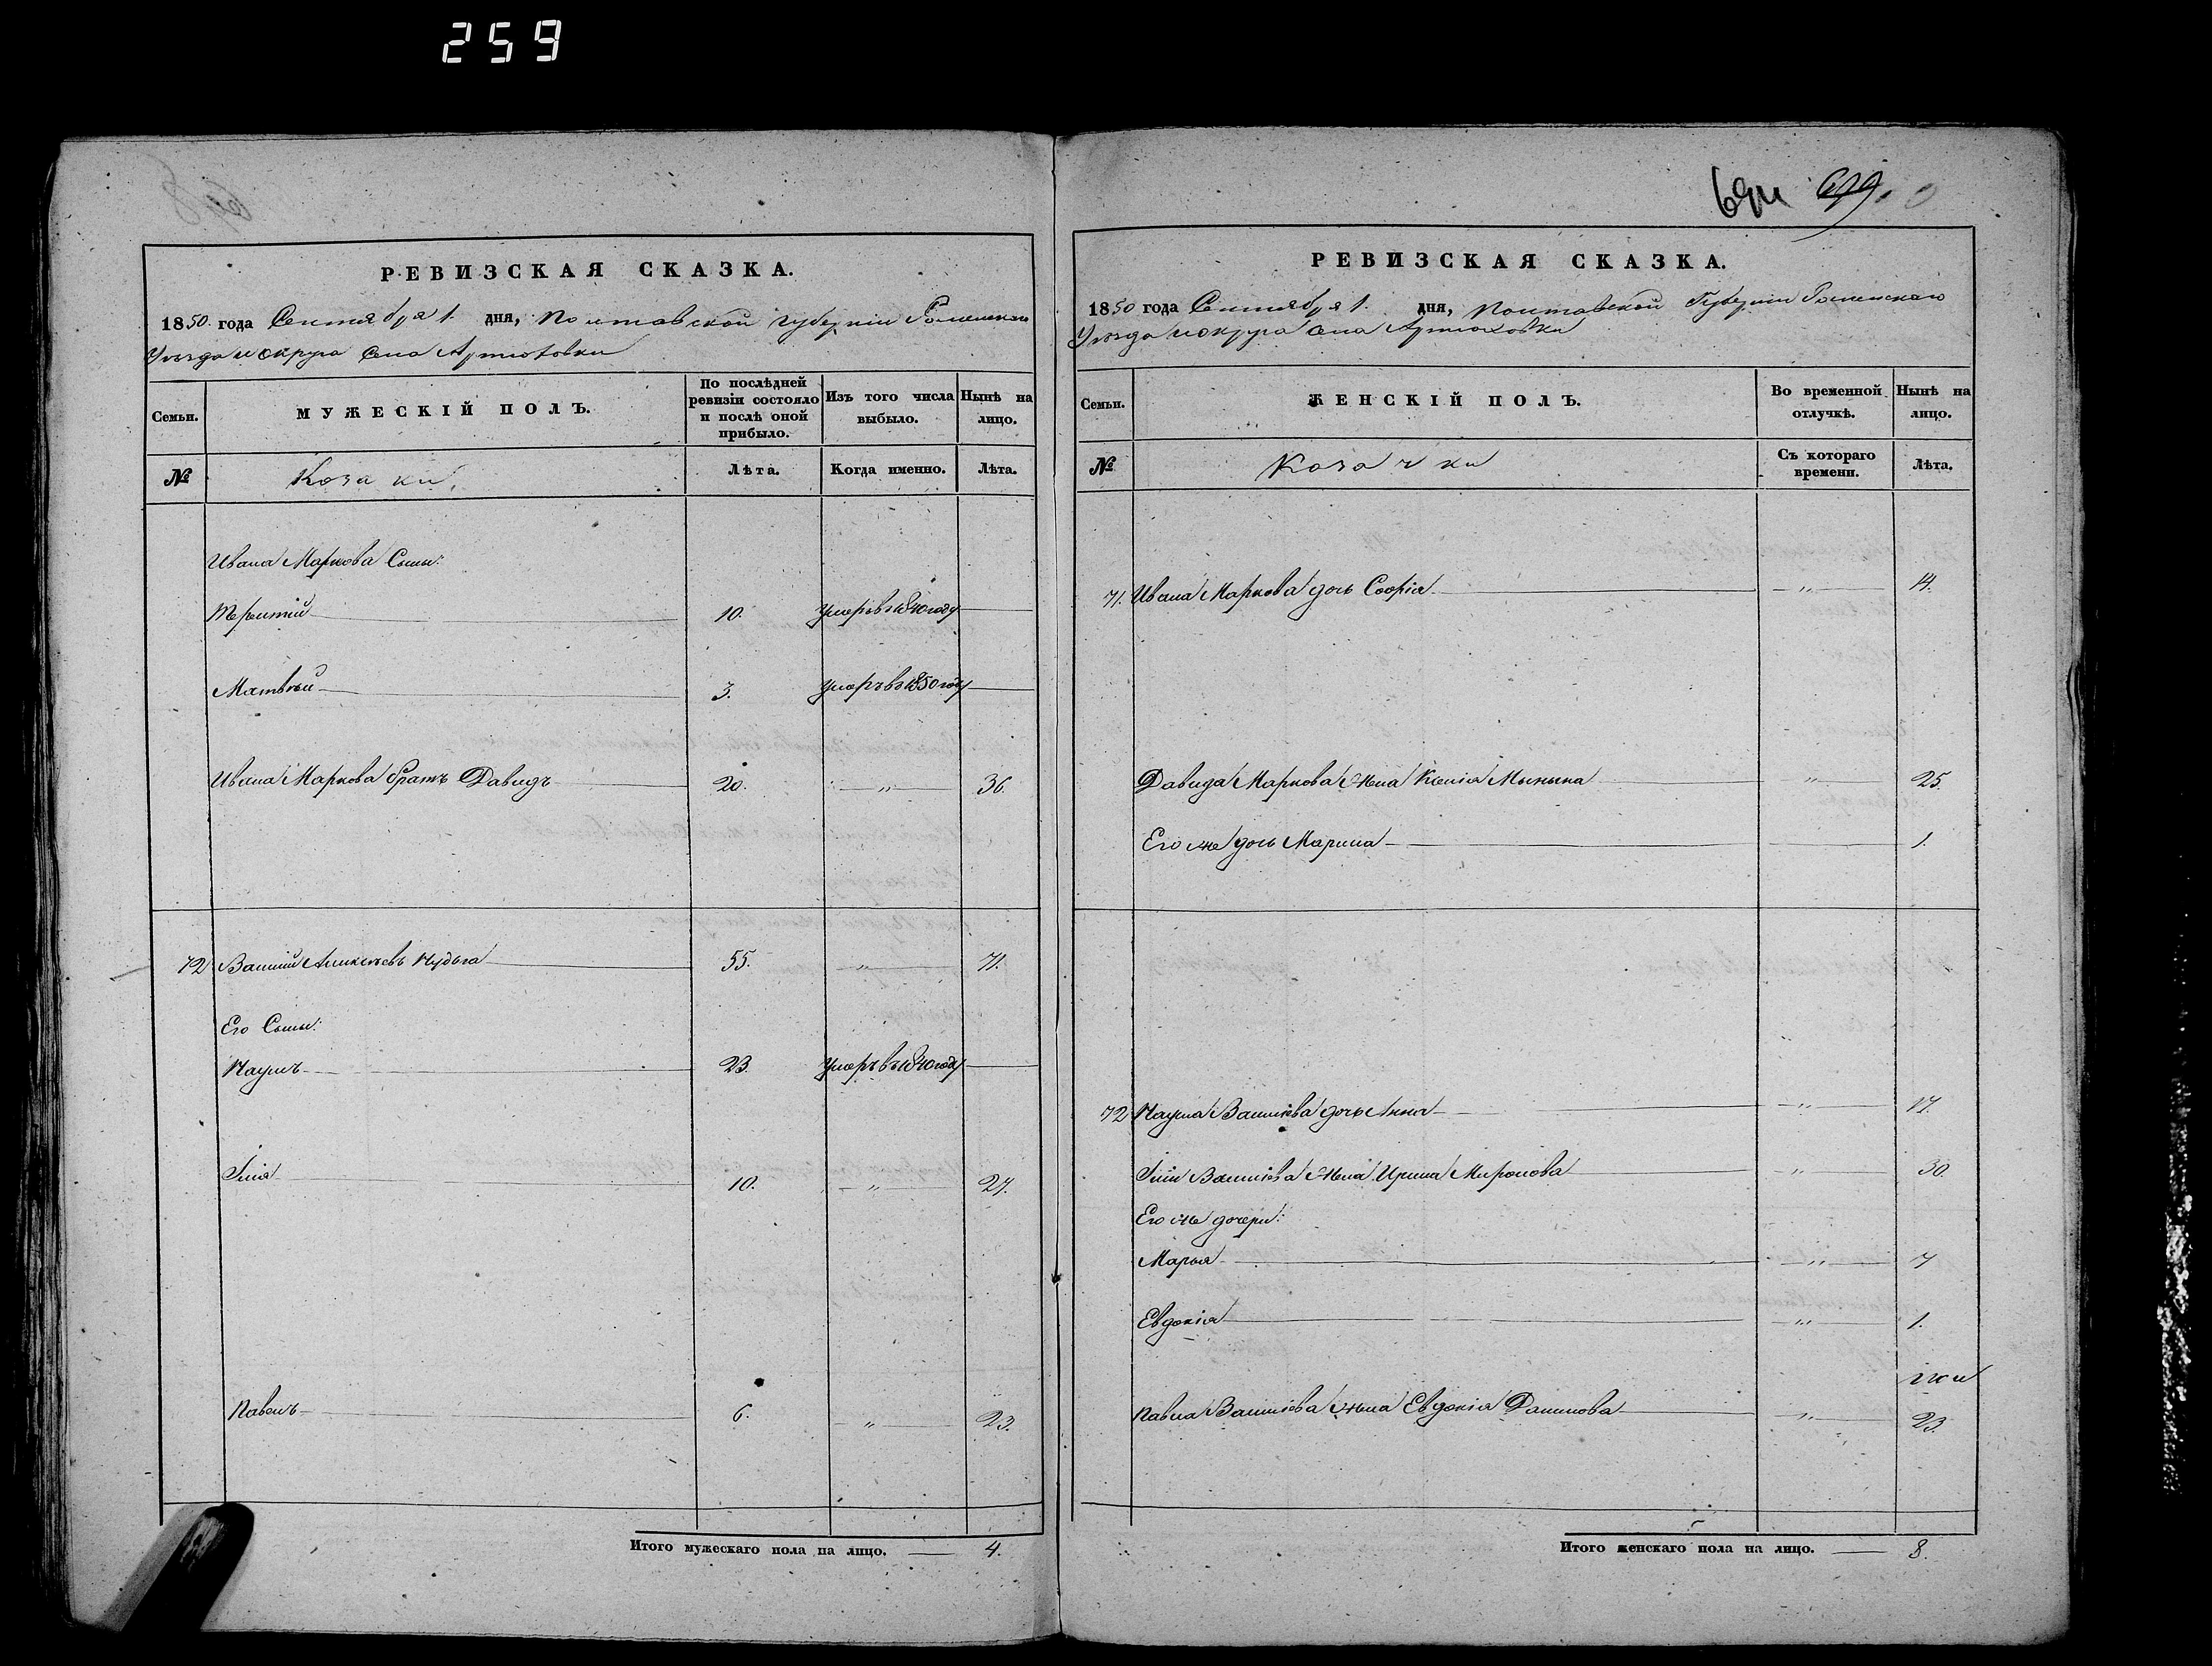 259
694 699.
РЕВИЗСКАЯ СКАЗКА.
1850 года Сентября 1. дня, Полтавской губерніи Роменскаго
Уѣзда и округа села Артюховки
Семьи.
МУЖЕСКІЙ ПОЛЪ.
По послѣдней ревизіи состояло и послѣ оной прибыло.
Изъ того числа выбыло.
Нынѣ на лицо.
№
Козаки
Лѣта.
Когда именно.
Лѣта.
Ивана Маркова Сыны:
Терентій 10. Умеръ въ 1840 году
Матвѣй 3. Умеръ въ 1850 году
Ивана Маркова братъ Давидъ 20. „ 36.
72 Василій Алексѣевъ 55. „ 71.
Его Сыны:
Наумъ 23. Умеръ въ 1840 году
Илія 10. „ 27.
Павелъ 6. „ 23.
Итого мужескаго пола на лицо. 4.
РЕВИЗСКАЯ СКАЗКА.
1850 года Сентября 1. дня, Полтавской Губерніи Роменскаго
Уѣзда и округа села Артюховки
Семьи.
ЖЕНСКІЙ ПОЛЪ.
Во временной отлучкѣ.
Нынѣ на лицо.
№
Козачки
Съ котораго времени.
Лѣта.
71. Ивана Маркова дочь Софія „ 14.
Давида Маркова жена Ксенія „ 25.
Его же дочь Марина 1.
72 Наума Васильева дочь Анна „ 17.
Иліи Васильева жена Ирина Миронова „ 30.
Его же дочери:
Марья „ 7
Евдокія „ 1.
Павла Васильева жена Евдокія Данилова „ 23.
Итого женскаго пола на лицо. 8.